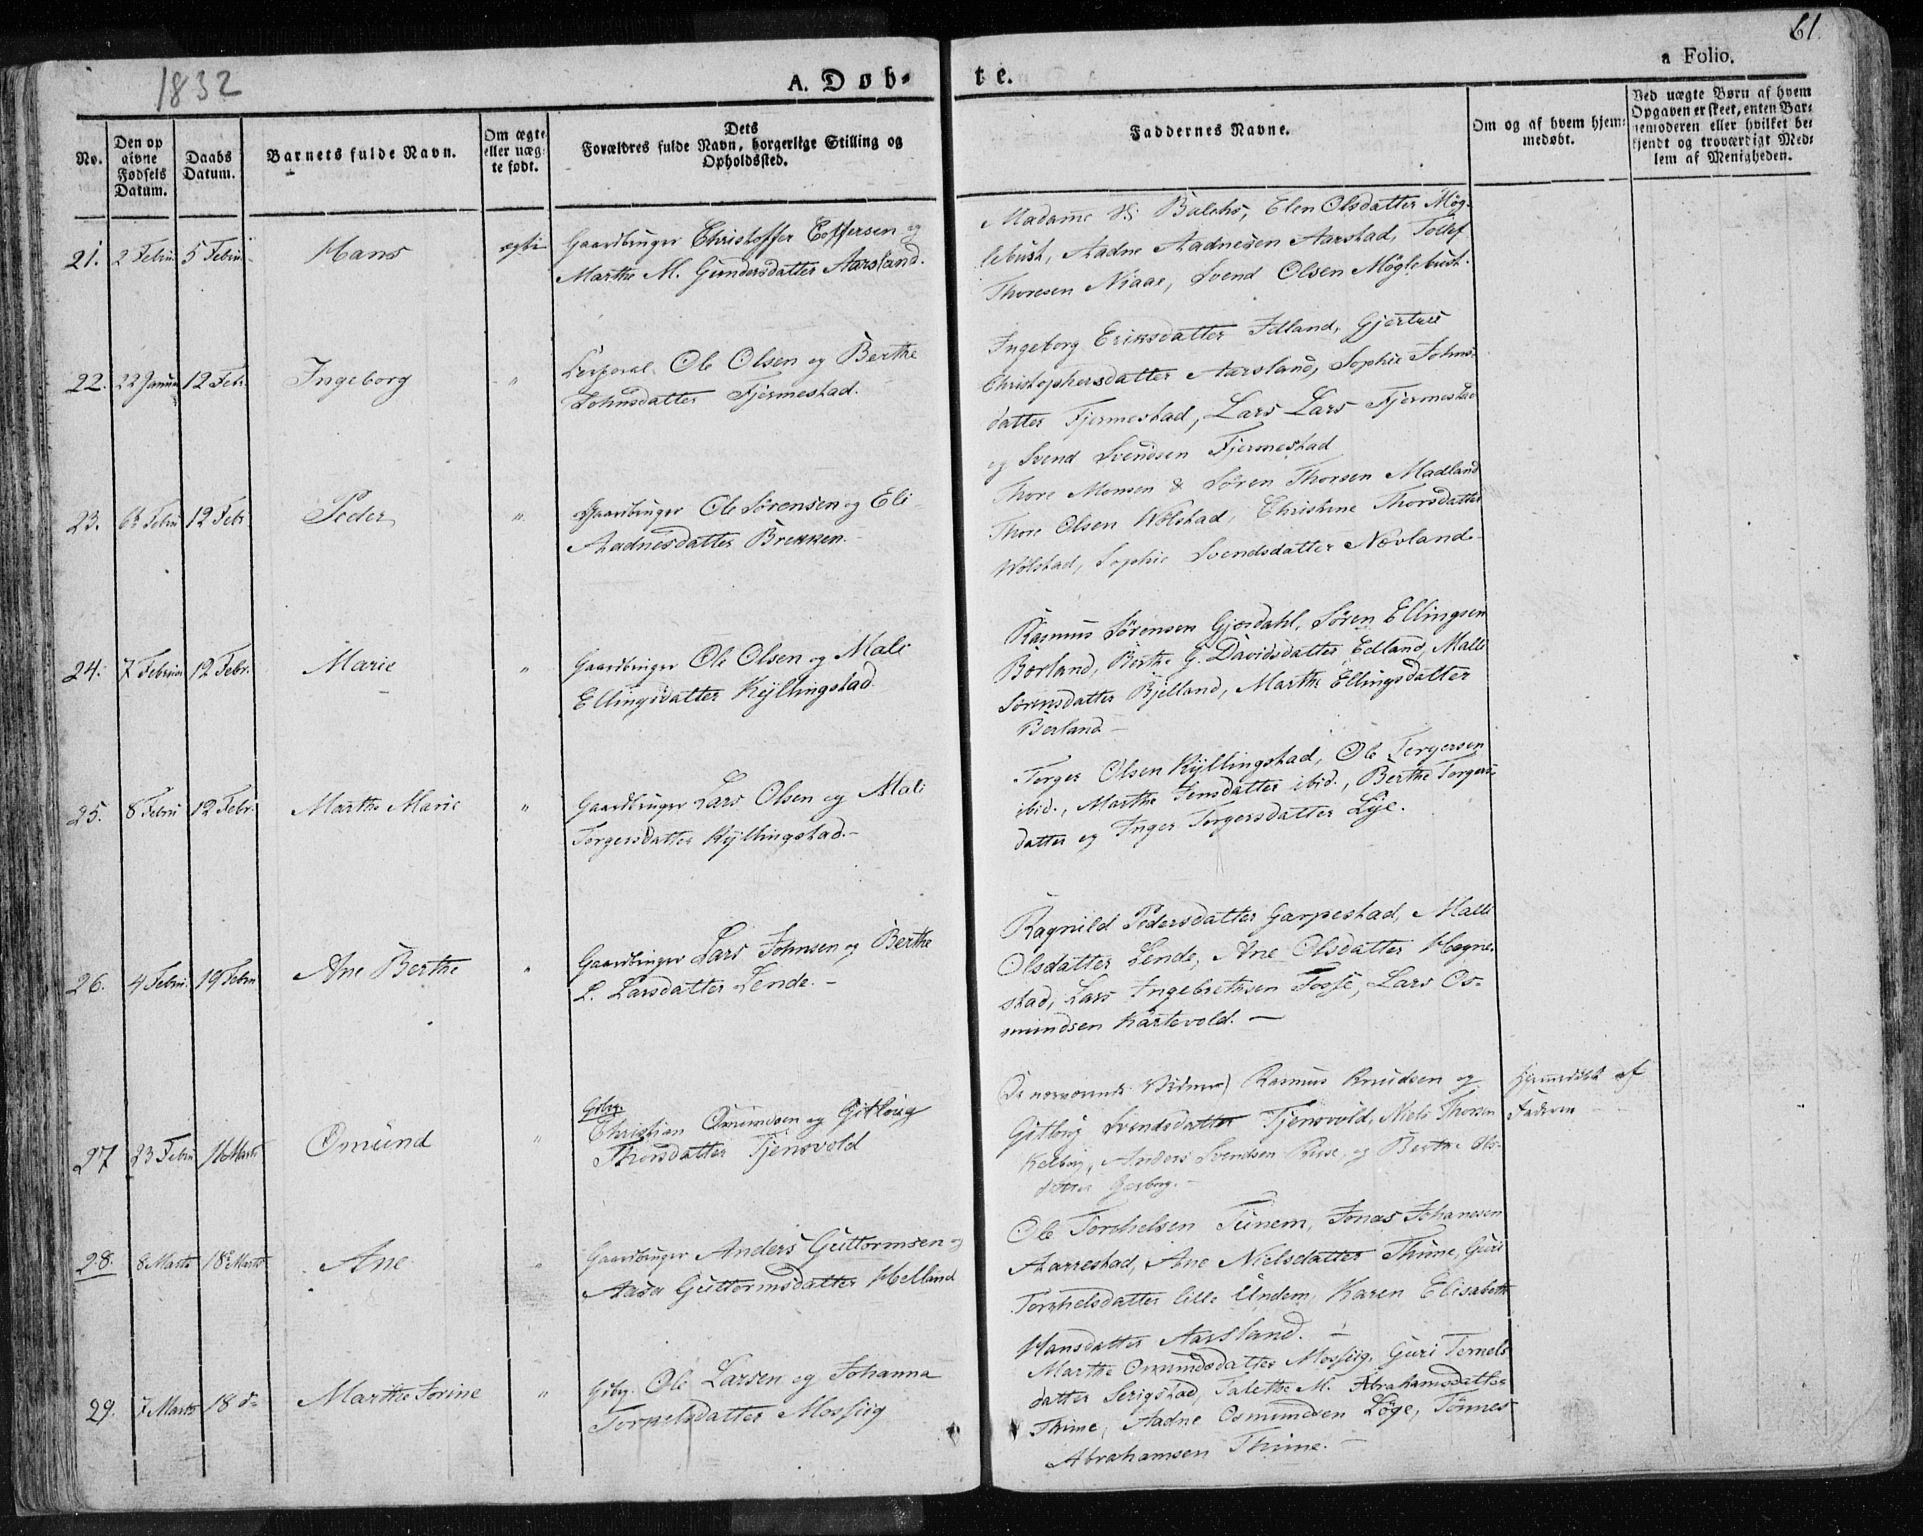 61.
1832
A. Døb-
te.
a Folio.
No.
Den op
givne
Fødsels
Datum.
Daabs
Datum.
Barnets fulde Navn.
Om ægte
eller uæg-
te født.
Dets
Forældres fulde Navn, borgerlige Stilling og
Opholdssted.
Faddernes Navne.
Om og af hvem hjem-
medøbt.
Ved uægte Børn af hvem
Opgaven er skeet, enten Bar-
nemoderen eller hvilket be-
kjendt og troværdigt Med-
lem af Menigheden.
21. 2 Febru 5 Febru Hans ægte
Gaardbruger Christoffer Eoffersen og
Marthe M. Gundersdatter Aarsland.
Madame Balchs, Elen Olsdatter Møg-
lebust, Aadne Aadnesen Aarstad, Tollef
Thoresen Niaae, Svend Olsen Møglebust.
22. 22 Janua 12 Febr. Ingeborg "
Corporal Ole Olsen og Berthe
Johnsdatter Fjermestad.
Ingeborg Eriksdatter Idland, Gjertrue
Christophersdatter Aarsland, Sophie Johns-
datter Fjermestad, Lars Lars Fjermestad
og Svend Svendsen Fjermestad
23. 6te Febru 12 Febr Peder "
Gaardbruger Ole Sørensen og Eli
Aadnesdatter Brekken.
Thore Monsen & Søren Thorsen Madland
Thore Olsen Wolstad, Christine Thorsdatter
Wolstad, Sophie Svendsdatter Nevland
24. 7 Februar 12 Febr. Marie "
Gaardbruger Ole Olsen og Mali
Ellingsdatter Kyllingstad.
Rasmus Sørensen Gjesdahl, Søren Ellingsen
Borland, Berthe G. Davidsdatter Edland, Malli
Sørensdatter Bjelland, Marthe Ellingsdatter
Berland
25. 8 Febru 12 Febr. Marthe Marie "
Gaardbruger Lars Olsen og Mali
Torgersdatter Kyllingstad.
Torger Olsen Kyllingstad, Ole Torgersen
ibid., Marthe Jensdatter ibid., Berthe Torgers-
datter og Inger Torgersdatter Lye.
26. 4 Febru. 19 Febru Ane Berthe "
Gaardbruger Lars Johnsen og Berthe
L. Larsdatter Lende.
Ragnild Pedersdatter Garpestad, Malli
Olsdatter Lende, Ane Olsdatter Hogne-
stad, Lars Ingebretsen Fosse, Lars Os-
mundsen Kartevold.
27 23 Febru 16 Marts Omund "
Grbgr
Christian Omundsen og Gitlaug
Thorsdatter Tjensvold
De nærværende Vidner Rasmus Knudsen og
Gitlaug Svendsdatter Tjensvold, Niels Thorsen
Anders Svendsen Rise, og Berthe Ols-
datter
Hjemmedøbt af
Faderen
28. 8 Marts 18de Marts Ane "
Gaardbruger Anders Guttormsen og
Aasa Guttormsdatter Helland
Ole Torkelsen Tunem, Jonas Johanesen
Aarrestad, Ane Nielsdatter Thime, Guri
Torkelsdatter lille Undem, Karen Elisabeth
Hansdatter Aarsland.
29. 7 Marts 18 do Marthe Sorine "
Grbgr. Ole Larsen og Johanna
Torkelsdatter Mossiig
Marthe Omundsdatter Mossiig, Guri Tornels
datter Serigstad, Talette M. Abrahamsdatter
Thime, Aadne Osmundsen Løge, Tønnes
Abrahamsen Thime.